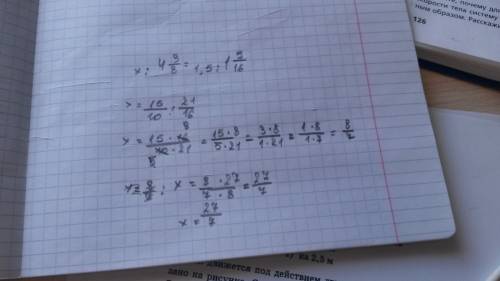 те, почему для
скорости тела систему
ным образом. Расскажи
126
x : 4 3/8 = 1,5 : 1 5/16
x = 15/10 : 21/16
x = 15 · 16 / 10 · 21 = 15 · 8 / 5 · 21 = 3 · 8 / 1 · 21 = 1 · 8 / 1 · 7 = 8/7
x = 8 · 27 / 7 · 8 = 27/7
x = 27/7
на 2,5 м
движется под действием
зано на рисунке.